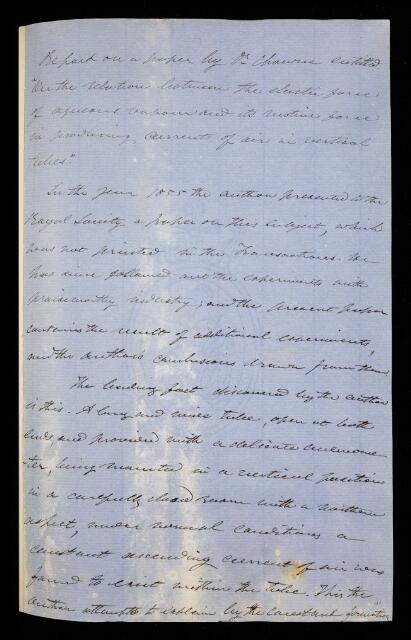 Report on a paper by Dr Chowne entitled
"On the relation between the elastic force
of aqueous vapour and its motive force
in producing currents of air in vertical
tubes"
In the year 1855 the author presented to the
Royal Society a paper on this subject, which
was not printed in the Transactions. He
has since followed out the experiments with
praiseworthy industry; and the present paper
contains the result of additional experiments,
and the author's conclusions drawn from them
The leading fact discovered by the author
is this. A long and wide tube, open at both
ends and provided with a delicate anemome-
-ter, being mounted in a vertical position
in a carefully closed room with a northern
aspect, under normal conditions a
constant ascending current of air was
found to exist within the tube. This the
author attempts to explain by the constant formation